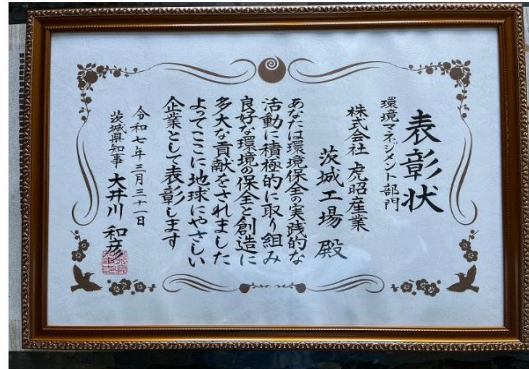 表彰状
環境マネジメント部門
株式会社 虎昭産業
茨城工場 殿
あなたは環境保全の実践的な
活動に積極的に取り組み
良好な環境の保全と創造に
多大な貢献をされました
よってここに地球にやさしい
企業として表彰します
令和七年三月三十一日
茨城県知事 大井川 和彦